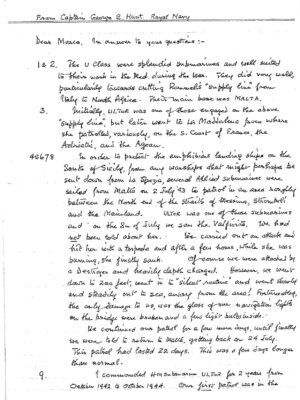 From Captain George E. Hunt Royal Navy
Dear Marco, In answer to your questions :-
1 & 2. The U Class were splendid submarines and well suited
to their work in the Med. during the War. They did very well,
particularly towards cutting Rommel's "supply line" from
Italy to North Africa. Their main base was MALTA.
3. Initially, ULTOR was one of those engaged on the above
"supply line", but later went to La Maddalena from where
she patrolled, variously, on the S. Coast of France, the
Adriatic, and the Aegean.
In order to protect the amphibious landing ships on the
South of Sicily, from any warships that might perhaps be
sent down from La Spezia, several Allied submarines were
sailed from Malta on 2 July '43 to patrol in an area roughly
between the North end of the Straits of Messina, Stromboli
and the Mainland. ULTOR was one of those submarines
and on the 8th of July we saw the Valfiorita. We had
not been told about her. We carried out an attack and
hit her with a torpedo and after a few hours, while she was
burning, she finally sank. Of course we were attacked by
a Destroyer and heavily depth charged. However, we went
down to 200 feet, went in to "silent routine" and went slowly
and steadily out to sea, away from the area! Fortunately,
the only damage to us, was the glass of our navigation lights
on the bridge were broken and a few light bulbs inside.
We continued our patrol for a few more days, until finally
we were told to return to Malta, getting back on 24 July.
This patrol had lasted 22 days. This was a few days longer
than normal.
9. I commanded HM Submarine ULTOR for 2 years from
October 1942 to October 1944. Our first patrol was in the